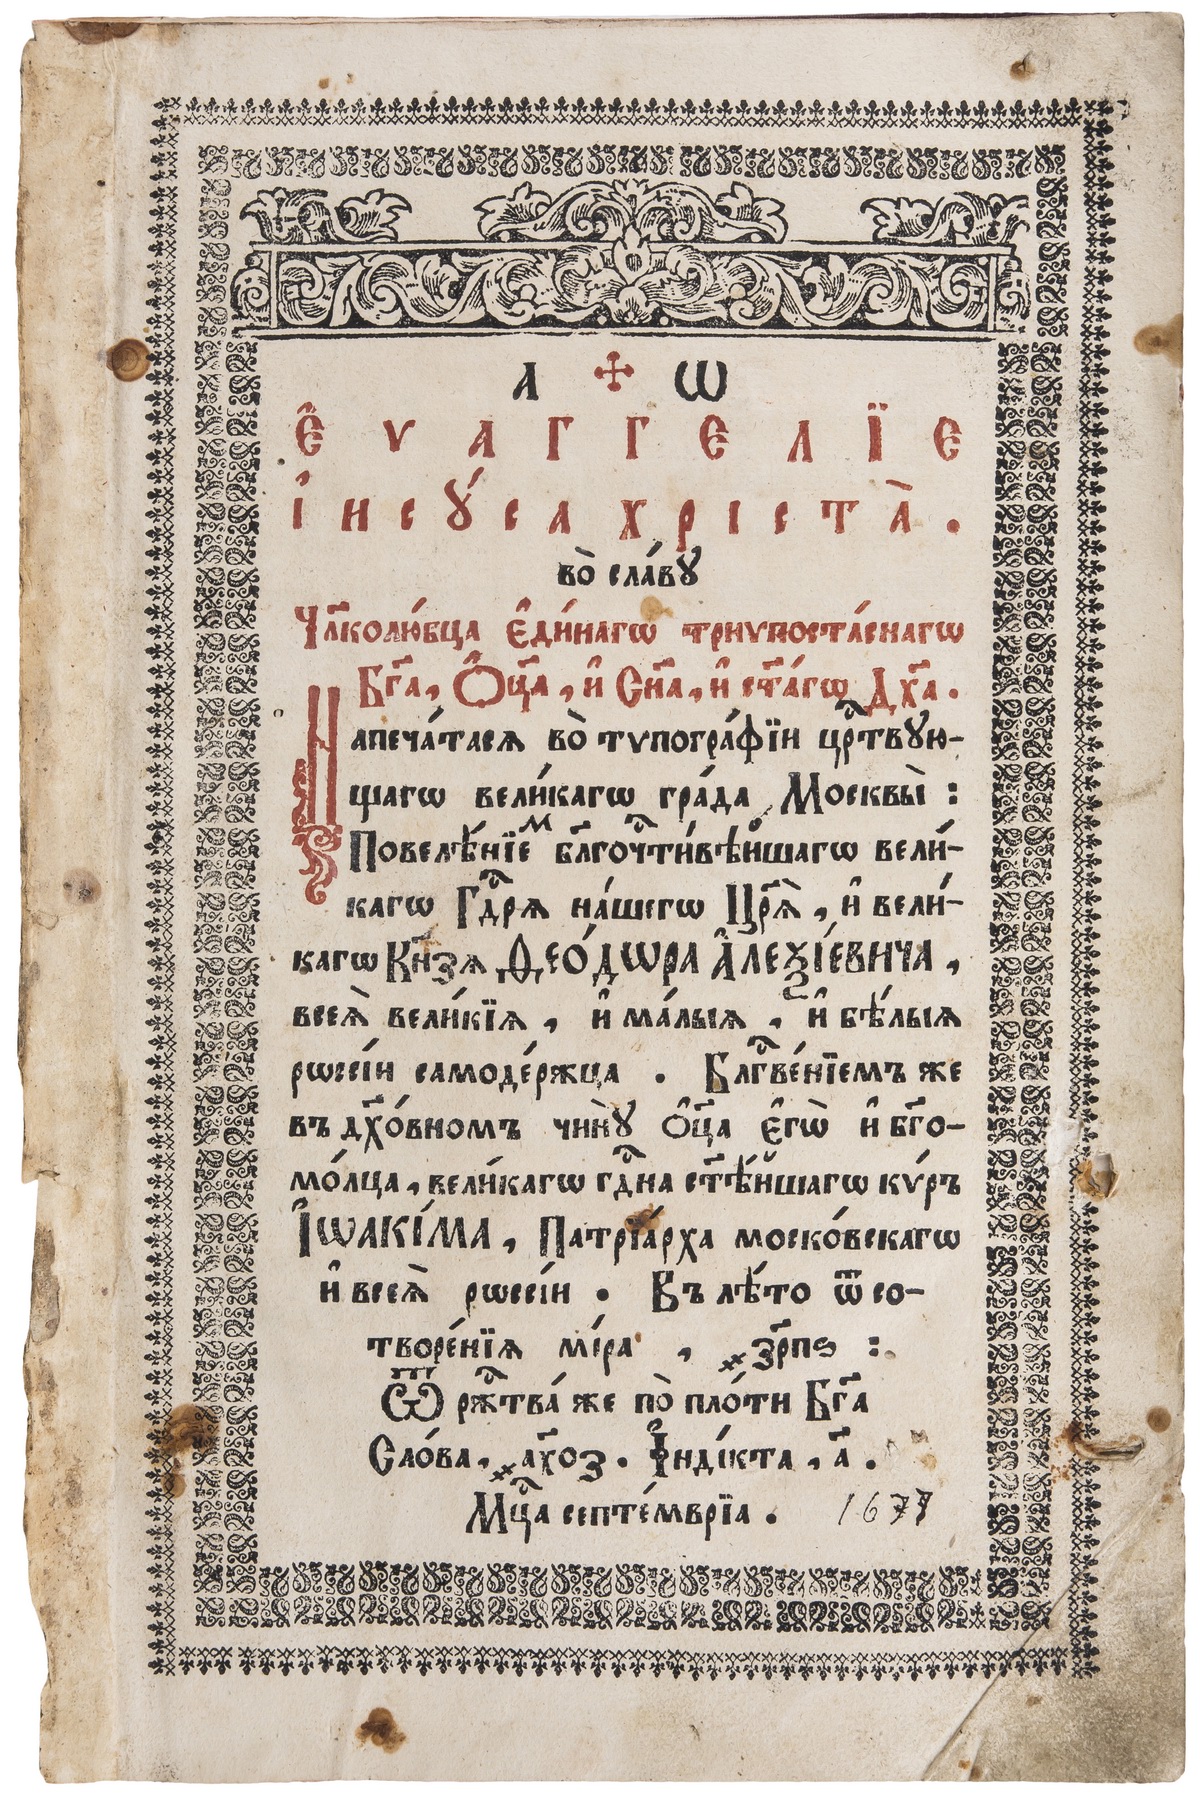 А ✢ Ѡ
Є҆ѵаггелїе
І҆исꙋ́са хрїста̀.
во̀ сла́вꙋ
Чл҃колю́бца є҆ди́нагѡ трїѵпоста́снагѡ
Бг҃а, Ѻ҆ц҃а, и҆ Сн҃а, и҆ ст҃а́гѡ Дх҃а.
Напеча́тасѧ во̀ тѵпогра́фїи црⷭ҇твꙋю-
щагѡ вели́кагѡ гра́да Москвы̀ :
Повелѣ́нїеⷨ блг҃очⷭ҇ти́вѣйшагѡ вели́-
кагѡ Гдⷭ҇рѧ на́шегѡ Цр҃ѧ̀, и҆ вели́-
кагѡ Кн҃зѧ Ѳео́дѡра А҆леѯі́евича,
всеѧ̀ вели́кїѧ, и҆ ма́лыѧ, и҆ бѣ́лыѧ
рѡссі́и самоде́ржца . Блгⷭ҇ве́нїемъ же
въ дх҃о́вномъ чи́нꙋ Ѻ҆ц҃а є҆гѡ̀ и҆ бг҃о-
мо́лца, вели́кагѡ гдⷭ҇на ст҃ѣ́йшагѡ кѵ́ръ
І҆ѡаки́ма, Патрїа́рха моско́вскагѡ
и҆ всеѧ̀ рѡссі́и . Въ лѣ́то ѿ со-
творе́нїѧ мі́ра , ҂зр҃пѕ :
Ѿ ржⷭ҇тва́ же по̀ пло́ти Бг҃а
Сло́ва, ҂ах҃оз . І҆нді́кта , а҃ .
Мцⷭ҇а септе́мврїа . 1677